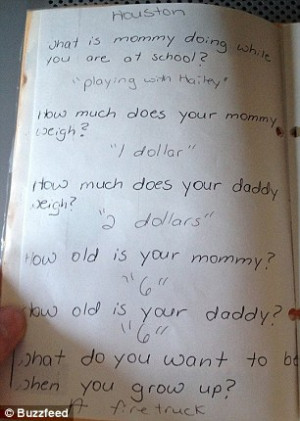 Houston
What is mommy doing while
you are at school?
"playing with Hailey"
How much does your mommy
weigh?
"1 dollar"
How much does your daddy
weigh?
"2 dollars"
How old is your mommy?
"6"
How old is your daddy?
"6"
What do you want to be
when you grow up?
A firetruck
© Buzzfeed